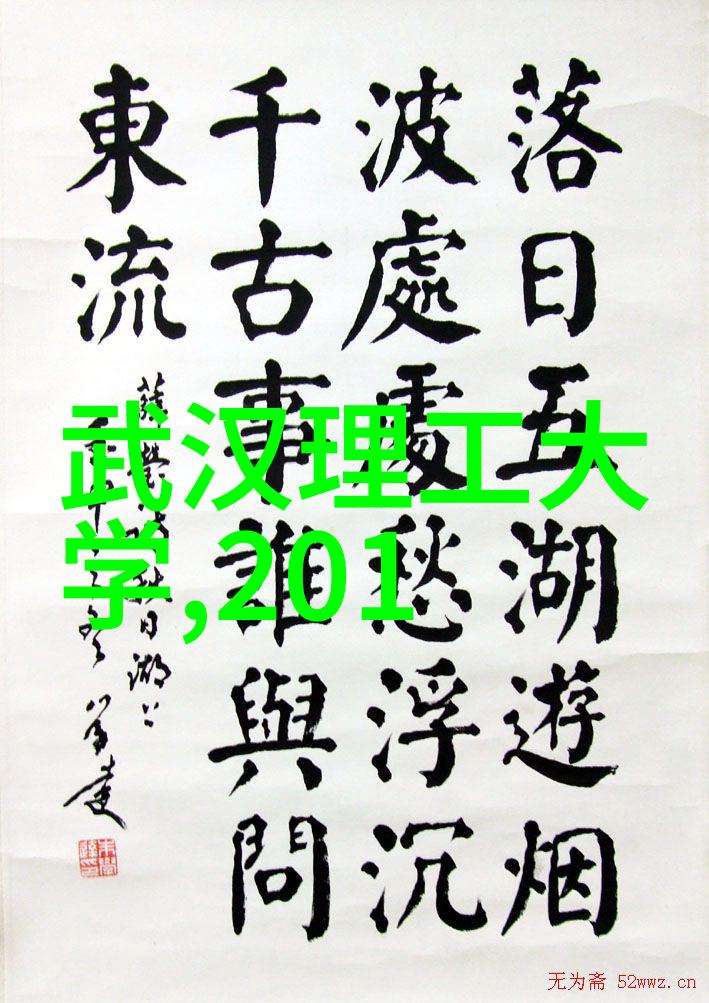 落日五湖遊烟
波處處愁浮沉
千古事誰與問
東流
薛瑩詩秋日湖上
武汉理工大
学,201
无为斋 52wwz.cn